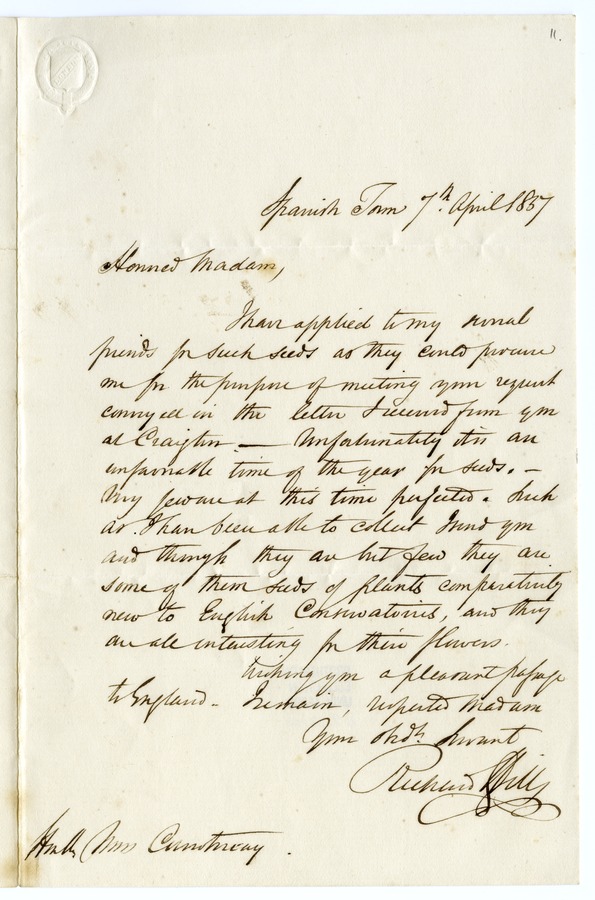 11.
Spanish Town 7th. April 1857
Honored Madam,
I have applied to my several
friends for such seeds as they could procure
me for the purpose of meeting your request
conveyed in the letter I received from you
at Craigton — Unfortunately it is an
unfavorable time of the year for seeds. —
Very few are at this time perfected. Such
as I have been able to collect I send you
and though they are but few they are
some of them seeds of plants comparatively
new to English Conservatories, and they
are all interesting for their flowers.
Wishing you a pleasant passage
to England — I remain, respected Madam
Your Obdt. Servant
Richard Hill
Honble Mrs